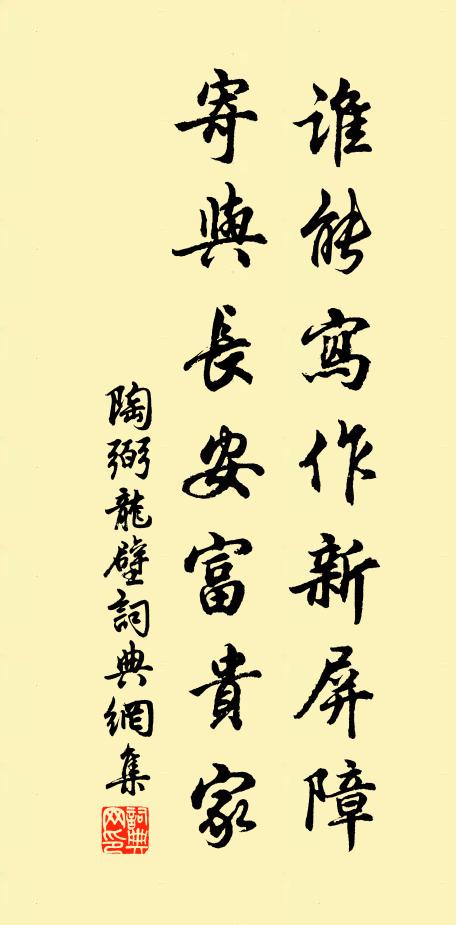 誰能寫作新屏障
寄與長安富貴家
陶弼龍壁詞典網集
詞典
网印